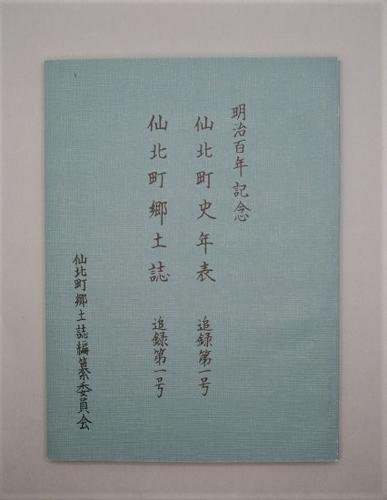 明治百年記念
仙北町史年表 追録第一号
仙北町郷土誌 追録第一号
仙北町郷土誌編纂委員会